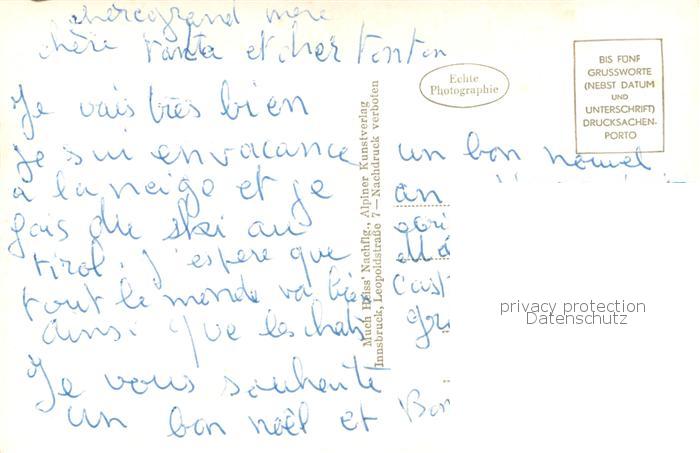 chère grand mère
chère tanta et cher tonton
Je vais très bien
je sui en vacance
a la neige et je
fais du ski au
tirol. j'espere que
tout le monde va bien
ainsi que les chats
Je vous souhaite
un bon noël et Bon
un bon nouvel
an
Echte
Photographie
BIS FÜNF
GRUSSWORTE
(NEBST DATUM
UND
UNTERSCHRIFT)
DRUCKSACHEN-
PORTO
Much Heiss' Nachflg., Alpiner Kunstverlag
Innsbruck, Leopoldstraße 7 — Nachdruck verboten
privacy protection
Datenschutz